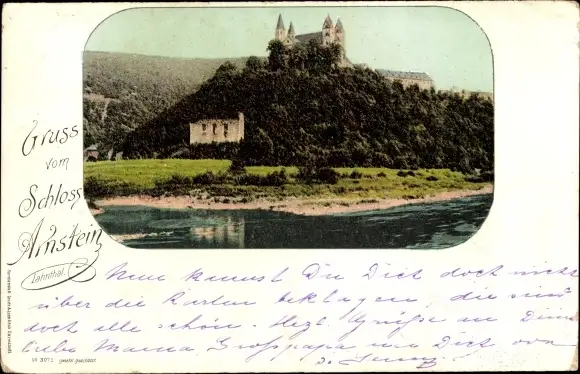 Gruss
vom
Schloss
Arnstein
Lahnthal.
Nun kannst Du Dich doch nicht
über die Karten beklagen, die sind
doch alle schön. Herzl. Grüsse an Deine
liebe Mama Grosspapa u. Dich von